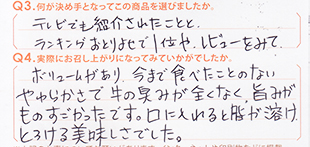 Q3.何が決め手となってこの商品を選びましたか。
テレビでも紹介されたことと、
ランキングおとりよせで1位や、レビューをみて
Q4.実際にお召し上がりになってみていかがでしたか。
ボリュームがあり、今まで食べたことのない
やわらかさで牛の臭みが全くなく、旨みが
ものすごかったです。口に入れると脂が溶け、
とろける美味しさでした。